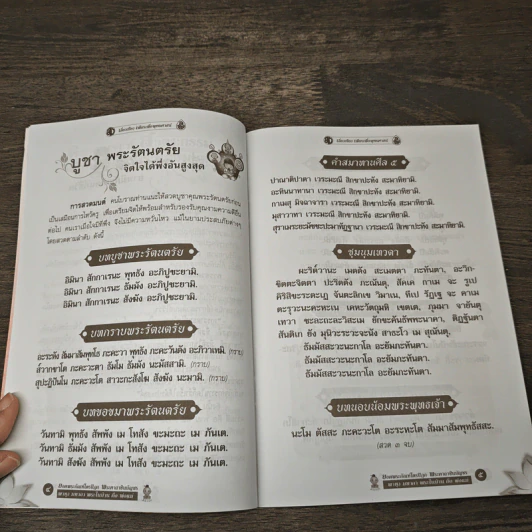 บูชา พระรัตนตรัย
จิตใจได้พึ่งอันสูงสุด
การสวดมนต์ คนโบราณท่านแนะให้สวดบูชาคุณพระรัตนตรัยก่อน
เป็นเสมือนการไหว้ครู เพื่อเตรียมจิตให้พร้อมสำหรับรองรับคุณงามความดีอื่น
ต่อไป คนเราเมื่อใจมีที่พึ่ง จึงไม่มีความหวั่นไหว แม้ในยามประสบภัยต่างๆ
โดยสวดตามลำดับ ดังนี้
บทบูชาพระรัตนตรัย
อิมินา สักกาเรนะ พุทธัง อะภิปูชะยามิ.
อิมินา สักกาเรนะ ธัมมัง อะภิปูชะยามิ.
อิมินา สักกาเรนะ สังฆัง อะภิปูชะยามิ.
บทกราบพระรัตนตรัย
อะระหัง สัมมาสัมพุทโธ ภะคะวา พุทธัง ภะคะวันตัง อะภิวาเทมิ. (กราบ)
ส๎วากขาโต ภะคะวะตา ธัมโม ธัมมัง นะมัสสามิ. (กราบ)
สุปะฏิปันโน ภะคะวะโต สาวะกะสังโฆ สังฆัง นะมามิ. (กราบ)
บทขอขมาพระรัตนตรัย
วันทามิ พุทธัง สัพพัง เม โทสัง ขะมะถะ เม ภันเต.
วันทามิ ธัมมัง สัพพัง เม โทสัง ขะมะถะ เม ภันเต.
วันทามิ สังฆัง สัพพัง เม โทสัง ขะมะถะ เม ภันเต.
๔
คำสมาทานศีล ๕
ปาณาติปาตา เวระมะณี สิกขาปะทัง สะมาทิยามิ.
อะทินนาทานา เวระมะณี สิกขาปะทัง สะมาทิยามิ.
กาเมสุ มิจฉาจารา เวระมะณี สิกขาปะทัง สะมาทิยามิ.
มุสาวาทา เวระมะณี สิกขาปะทัง สะมาทิยามิ.
สุราเมระยะมัชชะปะมาทัฏฐานา เวระมะณี สิกขาปะทัง สะมาทิยามิ.
ชุมนุมเทวดา
ผะริต๎วานะ เมตตัง สะเมตตา ภะทันตา, อะวิก-
ขิตตะจิตตา ปะริตตัง ภะณันตุ, สัคเค กาเม จะ รูเป
คิริสิขะระตะเฏ จันตะลิกเข วิมาเน, ทีเป รัฏเฐ จะ คาเม
ตะรุวะนะคะหะเน เคหะวัตถุมหิ เขตเต, ภุมมา จายันตุ
เทวา ชะละถะละวิสะเม ยักขะคันธัพพะนาคา, ติฏฐันตา
สันติเก ยัง มุนิวะระวะจะนัง สาธะโว เม สุณันตุ.
ธัมมัสสะวะนะกาโล อะยัมภะทันตา.
ธัมมัสสะวะนะกาโล อะยัมภะทันตา.
ธัมมัสสะวะนะกาโล อะยัมภะทันตา.
บทนอบน้อมพระพุทธเจ้า
นะโม ตัสสะ ภะคะวะโต อะระหะโต สัมมาสัมพุทธัสสะ.
(สวด ๓ จบ)
๕